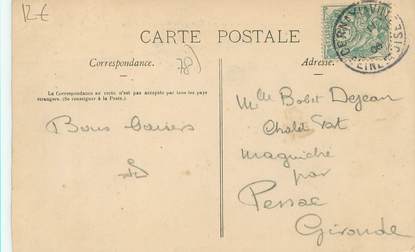 12€
CARTE POSTALE
Correspondance.
Adresse.
78)
La Correspondance au recto n'est pas acceptée par tous les pays
étrangers. (Se renseigner à la Poste.)
CERNAY-LA-VILLE
SEINE-&-OISE
Mlle Bobet Dejean
Chalet
Bons baisers
par
Pessac
Gironde